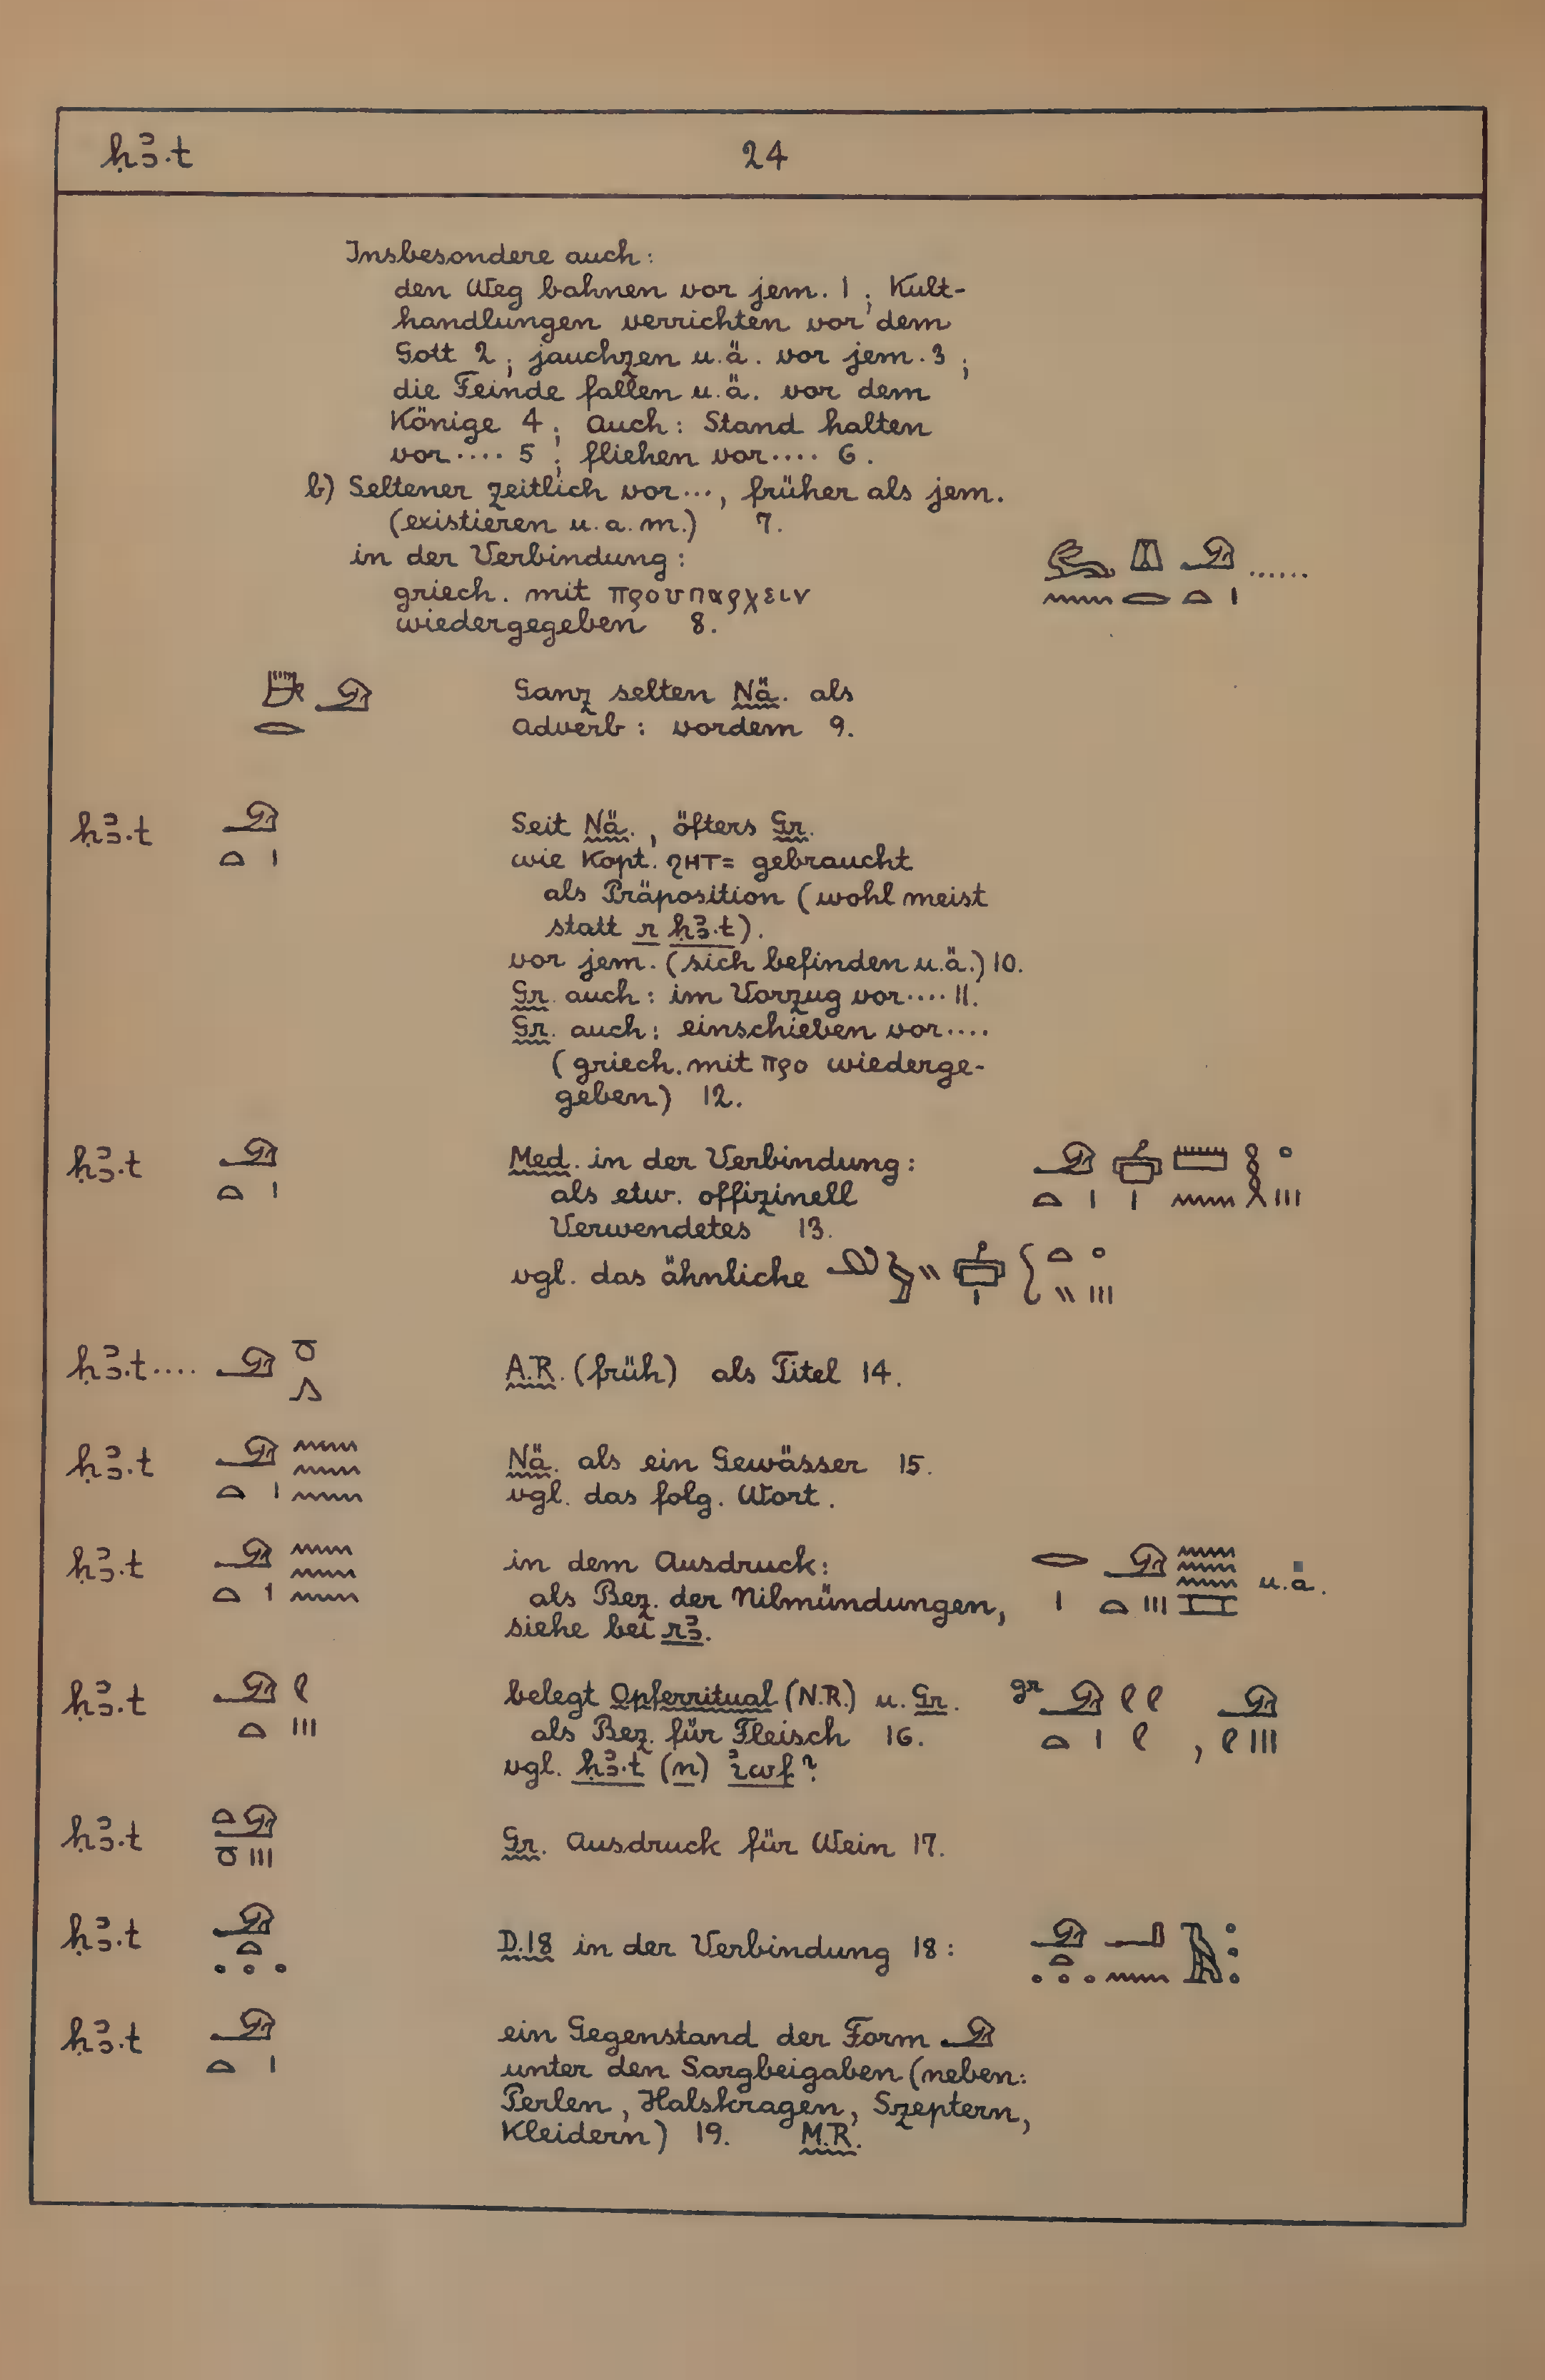 ḥꜣ.t 24
Insbesondere auch:
den Weg bahnen vor jem. 1; Kult-
handlungen verrichten vor dem
Gott 2; jauchzen u.ä. vor jem. 3;
die Feinde fallen u.ä. vor dem
Könige 4; auch: Stand halten
vor.... 5; fliehen vor.... 6.
b) Seltener zeitlich vor..., früher als jem.
(existieren u.a.m.) 7.
in der Verbindung:
griech. mit προυπαρχειν ......
wiedergegeben 8.
Ganz selten Nä. als
Adverb: vordem 9.
ḥꜣ.t Seit Nä., öfters Gr.
wie Kopt. ϩΗΤ= gebraucht
als Präposition (wohl meist
statt r ḥꜣ.t).
vor jem. (sich befinden u.ä.) 10.
Gr. auch: im Vorzug vor.... 11.
Gr. auch: einschieben vor....
(griech. mit προ wiederge-
geben) 12.
ḥꜣ.t Med. in der Verbindung:
als etw. offizinell
Verwendetes 13.
vgl. das ähnliche
ḥꜣ.t.... A.R. (früh) als Titel 14.
ḥꜣ.t Nä. als ein Gewässer 15.
vgl. das folg. Wort.
ḥꜣ.t in dem Ausdruck: u.ä.
als Bez. der Nilmündungen,
siehe bei rꜣ.
ḥꜣ.t belegt Opferritual (N.R.) u. Gr. gr ,
als Bez. für Fleisch 16.
vgl. ḥꜣ.t (n) iwf?
ḥꜣ.t Gr. Ausdruck für Wein 17.
ḥꜣ.t D.18 in der Verbindung 18:
ḥꜣ.t ein Gegenstand der Form
unter den Sargbeigaben (neben:
Perlen, Halskragen, Szeptern,
Kleidern) 19. M.R.